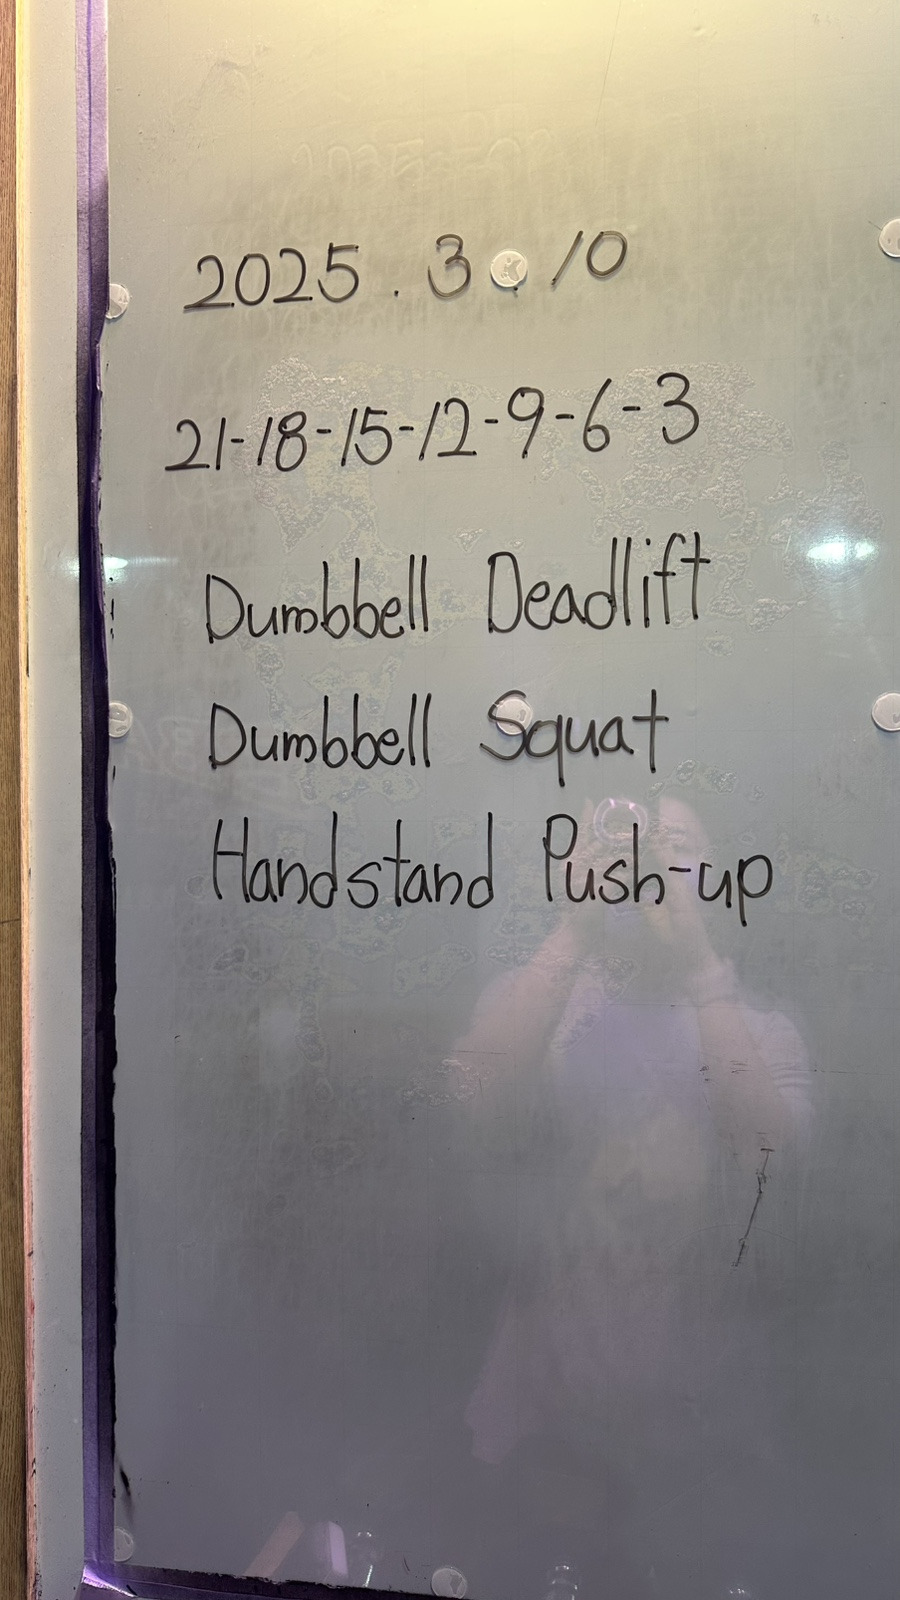 2025 . 3 . 10
21-18-15-12-9-6-3
Dumbbell Deadlift
Dumbbell Squat
Handstand Push-up